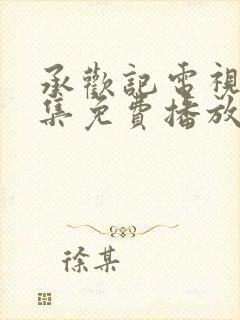 承歡記電視
集免費播放
徐某